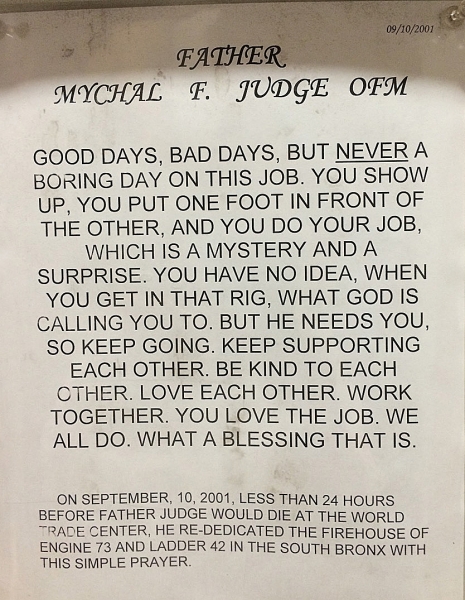 09/10/2001
FATHER
MYCHAL F. JUDGE OFM
GOOD DAYS, BAD DAYS, BUT NEVER A
BORING DAY ON THIS JOB. YOU SHOW
UP, YOU PUT ONE FOOT IN FRONT OF
THE OTHER, AND YOU DO YOUR JOB,
WHICH IS A MYSTERY AND A
SURPRISE. YOU HAVE NO IDEA, WHEN
YOU GET IN THAT RIG, WHAT GOD IS
CALLING YOU TO. BUT HE NEEDS YOU,
SO KEEP GOING. KEEP SUPPORTING
EACH OTHER. BE KIND TO EACH
OTHER. LOVE EACH OTHER. WORK
TOGETHER. YOU LOVE THE JOB. WE
ALL DO. WHAT A BLESSING THAT IS.
ON SEPTEMBER, 10, 2001, LESS THAN 24 HOURS
BEFORE FATHER JUDGE WOULD DIE AT THE WORLD
TRADE CENTER, HE RE-DEDICATED THE FIREHOUSE OF
ENGINE 73 AND LADDER 42 IN THE SOUTH BRONX WITH
THIS SIMPLE PRAYER.